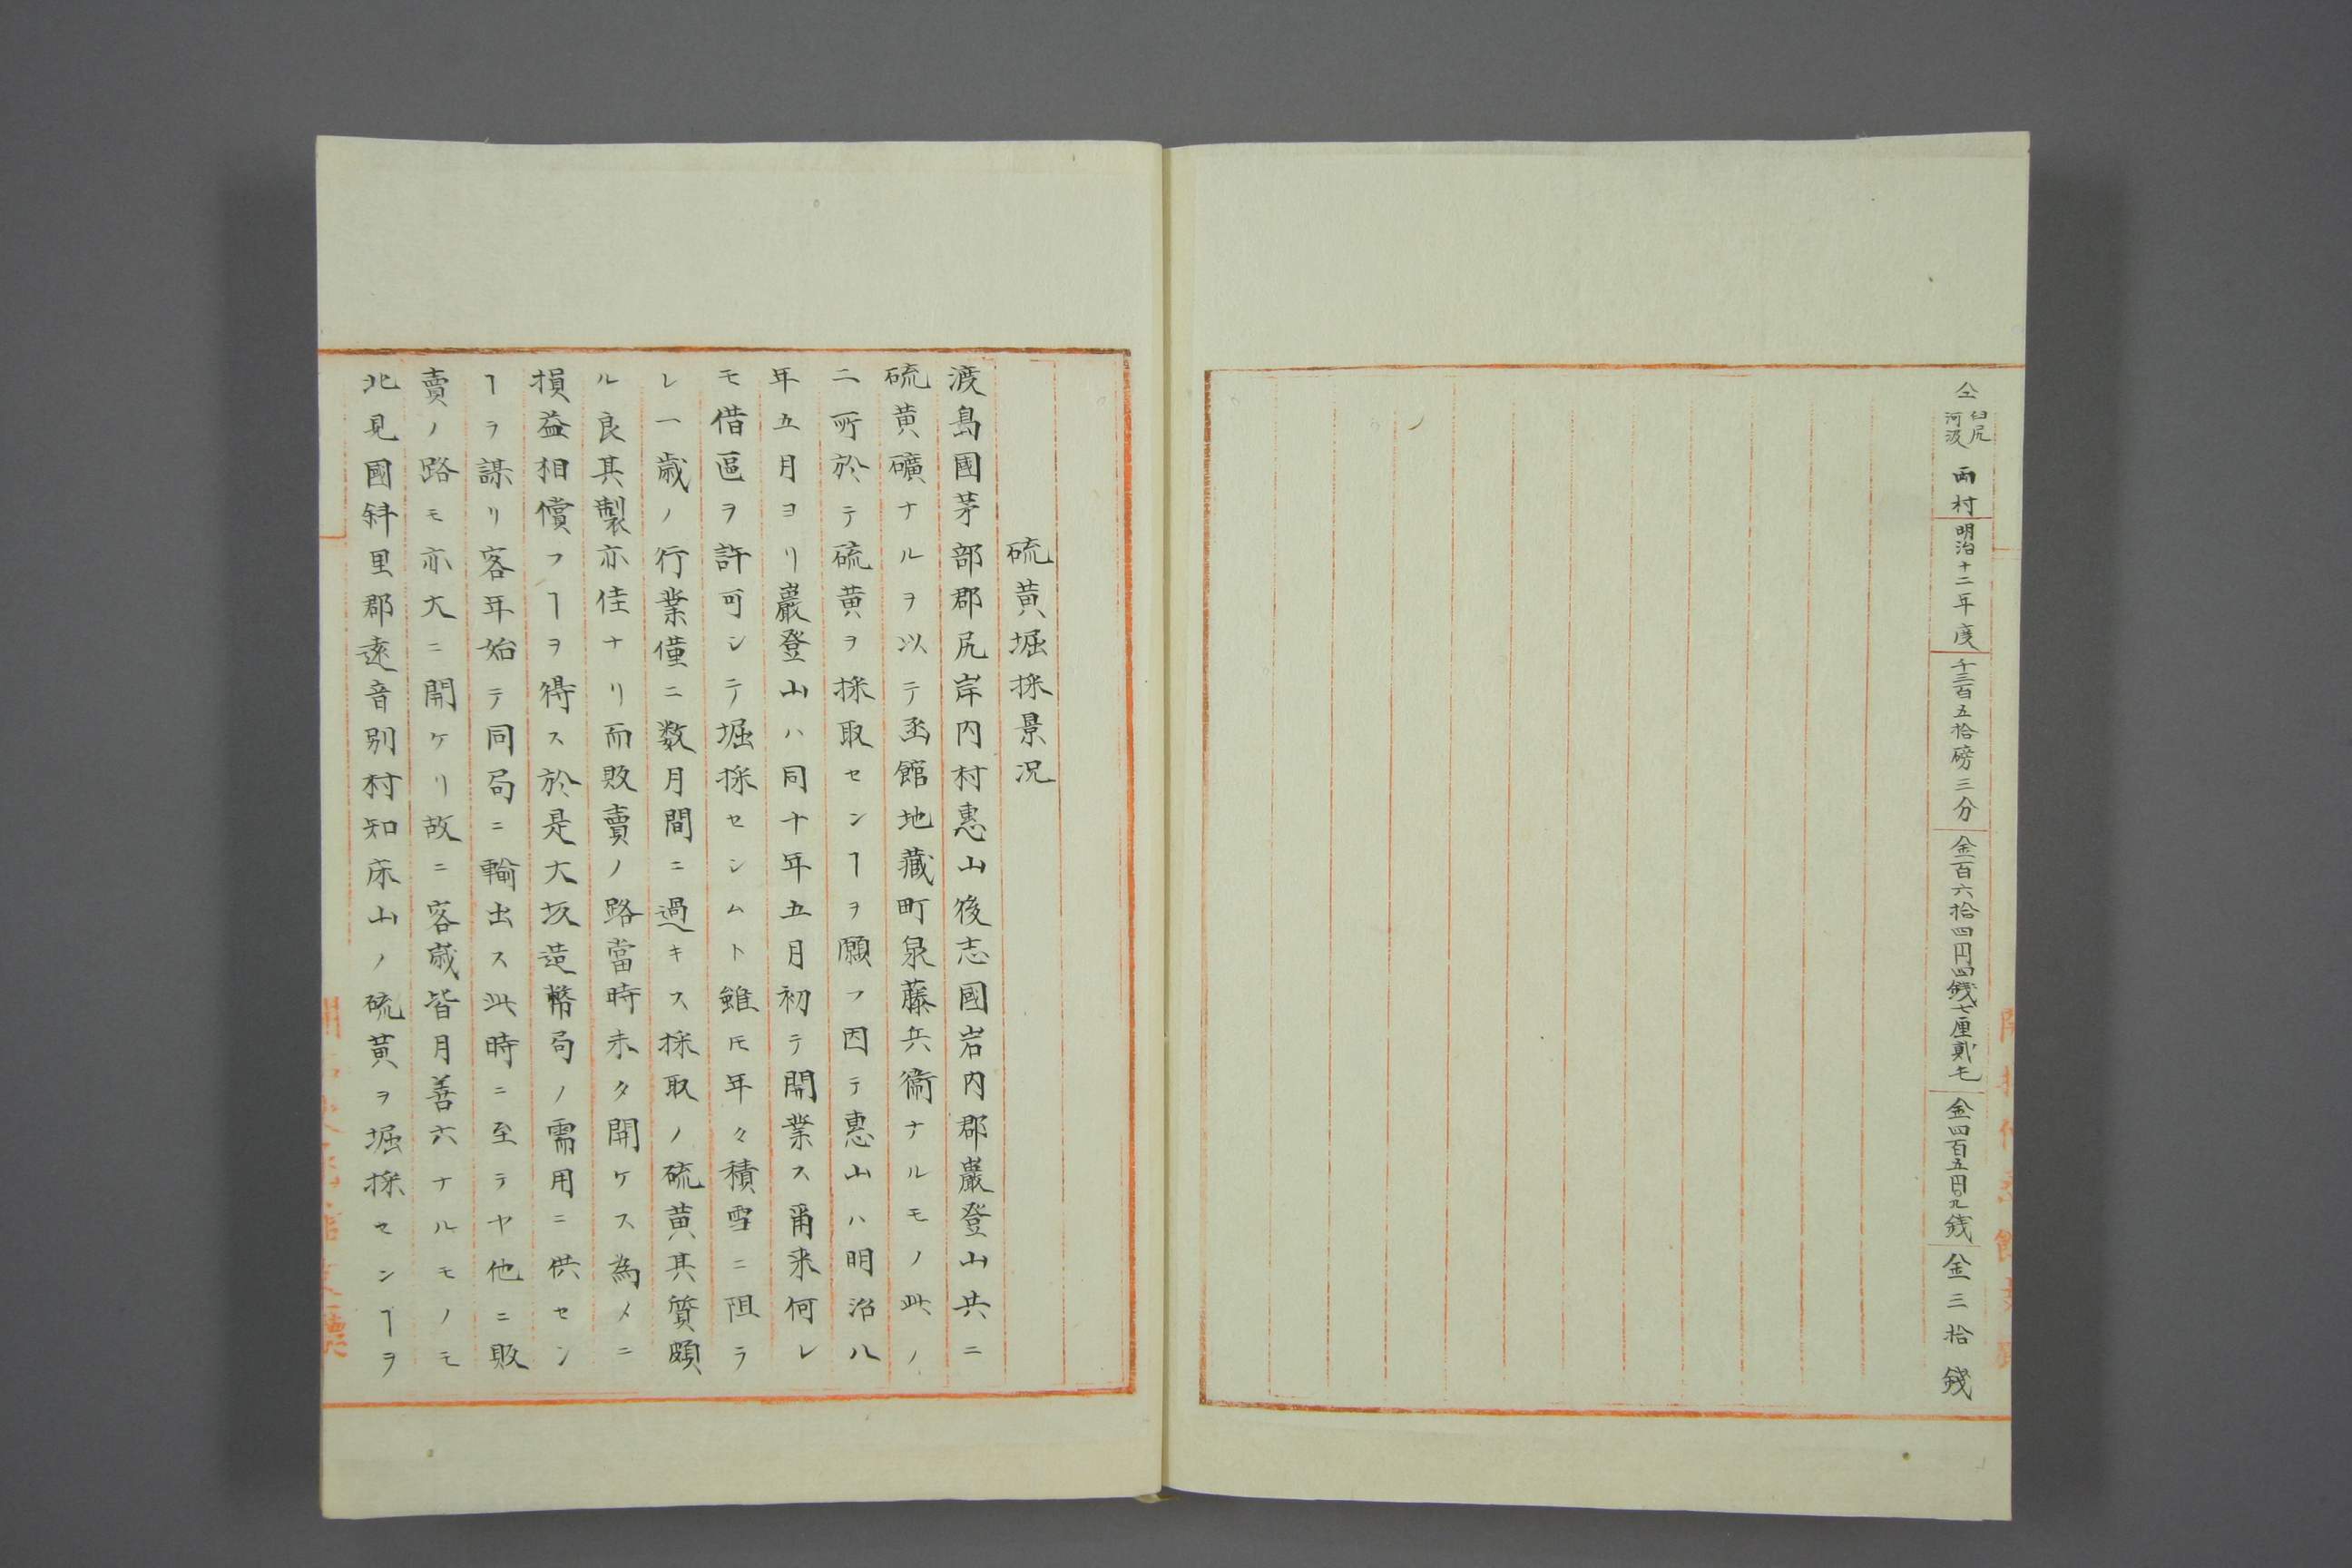 仝 臼尻 河汲 両村 明治十二年度 千三百五拾磅三分 金百六拾四円四銭七厘貳毛 金四百五円九銭 金三拾銭
硫黄堀採景况
渡島國茅部郡尻岸内村惠山後志國岩内郡巖登山共ニ
硫黄礦ナルヲ以テ函館地藏町泉藤兵衞ナルモノ此ノ
二所於テ硫黄ヲ採取センヿヲ願フ因テ惠山ハ明治八
年五月ヨリ巖登山ハ同十年五月初テ開業ス爾来何レ
モ借區ヲ許可シテ堀採セシムト雖𪜈年々積雪ニ阻ラ
レ一歳ノ行業僅ニ数月間ニ過キス採取ノ硫黄其質頗
ル良其製亦佳ナリ而販賣ノ路當時未タ開ケス為メニ
損益相償フヿヲ得ス於是大坂造幣局ノ需用ニ供セン
ヿヲ謀リ客年始テ同局ニ輸出ス此時ニ至テヤ他ニ販
賣ノ路モ亦大ニ開ケリ故ニ客歳皆月善六ナルモノモ
北見國斜里郡遠音別村知床山ノ硫黄ヲ堀採センヿヲ